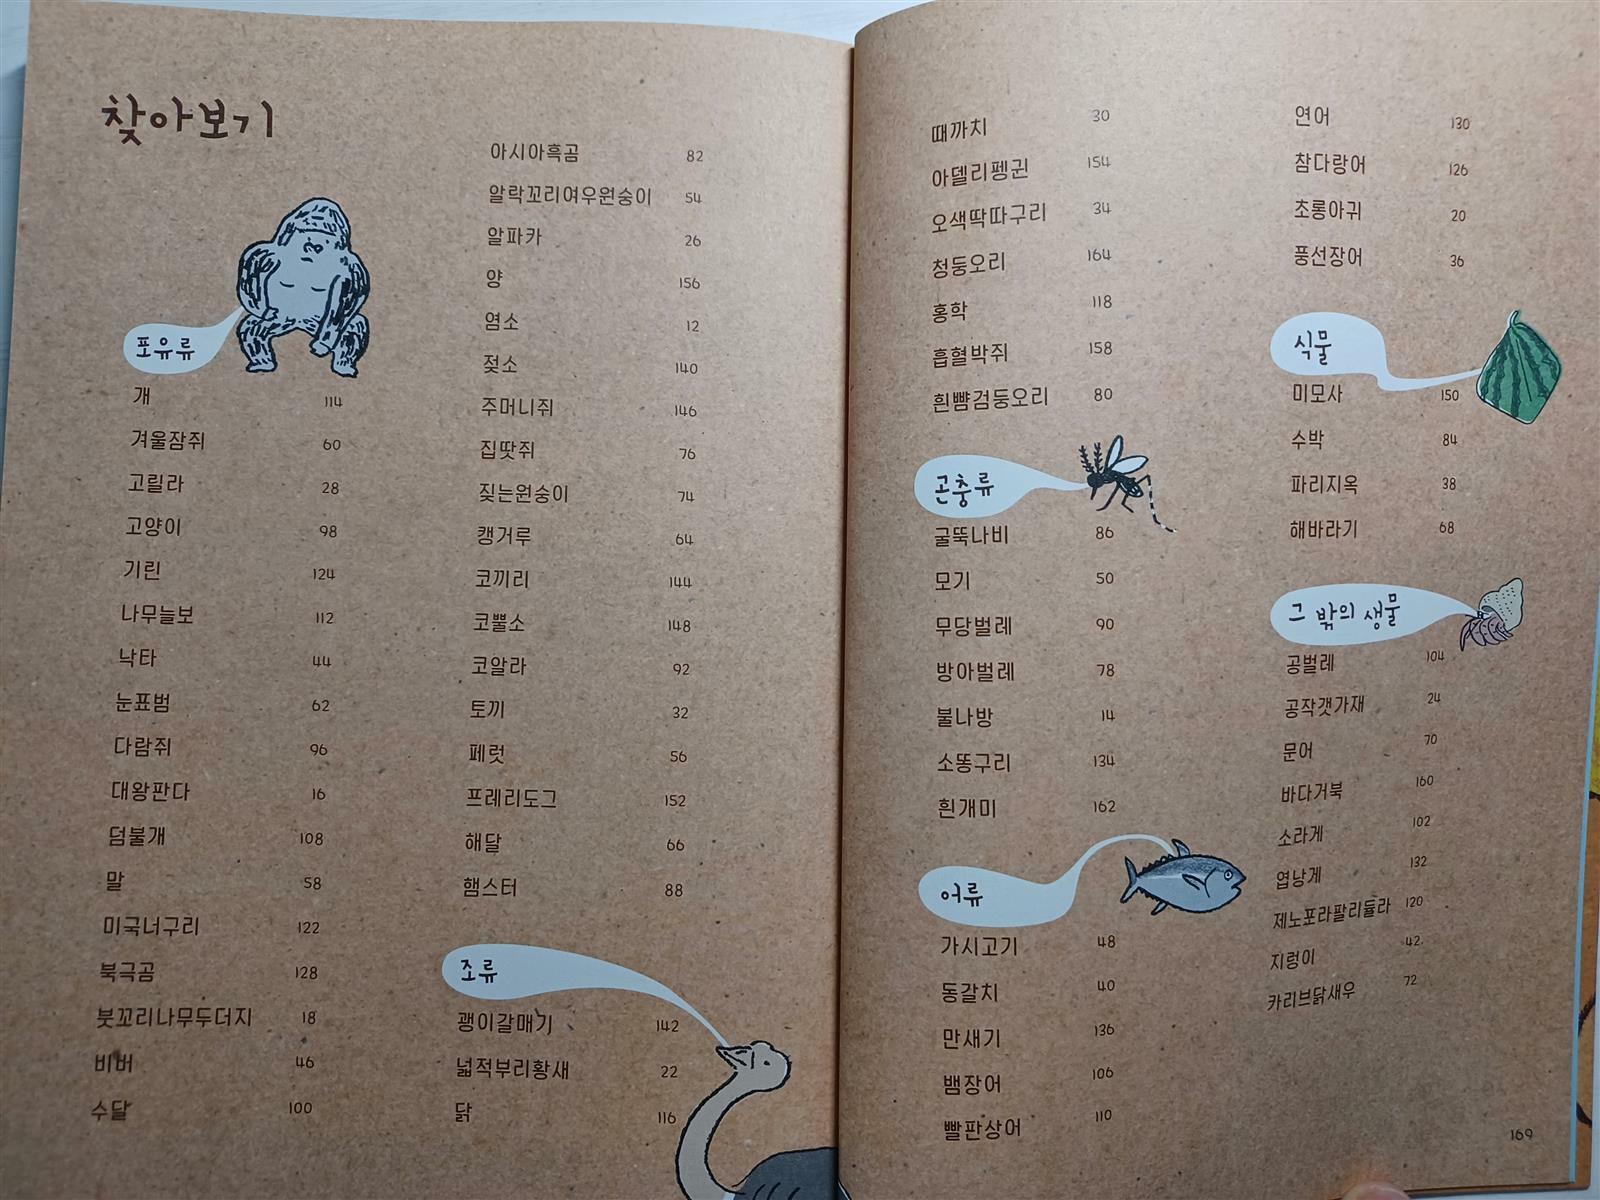 찾아보기
포유류
개 114
겨울잠쥐 60
고릴라 28
고양이 98
기린 124
나무늘보 112
낙타 44
눈표범 62
다람쥐 96
대왕판다 16
덤불개 108
말 58
미국너구리 122
북극곰 128
붓꼬리나무두더지 18
비버 46
수달 100
아시아흑곰 82
알락꼬리여우원숭이 54
알파카 26
양 156
염소 12
젖소 140
주머니쥐 146
집땃쥐 76
짖는원숭이 74
캥거루 64
코끼리 144
코뿔소 148
코알라 92
토끼 32
페럿 56
프레리도그 152
해달 66
햄스터 88
조류
괭이갈매기 142
넓적부리황새 22
닭 116
때까치 30
아델리펭귄 154
오색딱따구리 34
청둥오리 164
홍학 118
흡혈박쥐 158
흰뺨검둥오리 80
곤충류
굴뚝나비 86
모기 50
무당벌레 90
방아벌레 78
불나방 14
소똥구리 134
흰개미 162
어류
가시고기 48
동갈치 40
만새기 136
뱀장어 106
빨판상어 110
연어 130
참다랑어 126
초롱아귀 20
풍선장어 36
식물
미모사 150
수박 84
파리지옥 38
해바라기 68
그 밖의 생물
공벌레 104
공작갯가재 24
문어 70
바다거북 160
소라게 102
엽낭게 132
제노포라팔리듈라 120
지렁이 42
카리브닭새우 72
169